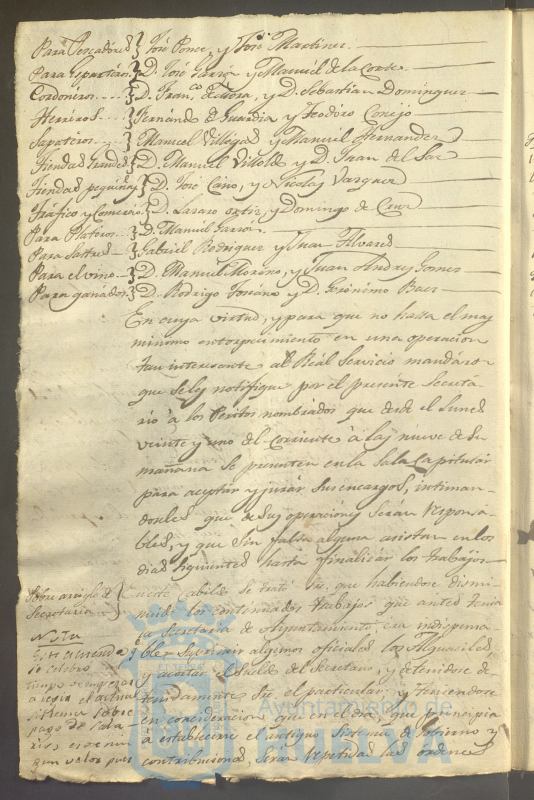 Para Pescadores } José Ponce, y José Martinez
Para Esparteros } D. José Garzon y Manuel de la Corte
Cordoneros } D. Franco. de Mora, y D. Sebastian Dominguez
Herreros } Fernando de Guardia y Teodóro Conejo
Sapateros } Manuel Villegas y Manuel Hernandez
Tiendas grandes } D. Manuel y D. Juan del
Tiendas pequeñas } D. José Cano, y Nicolas Vazquez
Tráfico y Comercio } D. Lazaro Ortiz, y Domingo de
Para Plateros } D. Manuel Garzon
Para Sastres } Gabriel Rodriguez y Juan Alvares
Para el vino } D. Manuel Moreno, y Juan Andres Gomes
Para ganados } D. Rodrigo Soriano y D. Gerónimo Baes
En cuya virtud, y para que no halla el mas
minimo entorpecimiento en una operacion
tan interesante al Real Servicio mandáron
que se les notifique por el presente Secretá-
rio à los Peritos nombrados que desde el lunes
veinte y uno del Corriente à las nueve de su
mañana se presenten en la Sala Capitular
para aceptar y jurár sus encargos, intiman-
doseles que de sus operaciones serán responsá-
bles, y que sin falta alguna asistan en los
dias siguientes hasta finalizar los trabajos
Sobre arreglo de
Secretaria
este Cabildo se trató que habiendose dismi-
nuido los continuados trabajos que antes tenia
la Secretaria de Ayuntamiento, era indispensa-
ble algunos oficiales, los Alguaciles,
y acortar el sueldo del Secretario, y detenidose de-
tenidamente en el particular, y teniendose
en consideracion que en el dia, que principia
à establecerse el antiguo Sistema de Gobierno y
contribuciones, serán repetidas las órdenes
Nota
Este acuerdo
se celebró
tiempo empezar
a regir el actual
sistema sobre
pago de
es de nin
gun valor pues
Ayuntamiento de
HUELVA